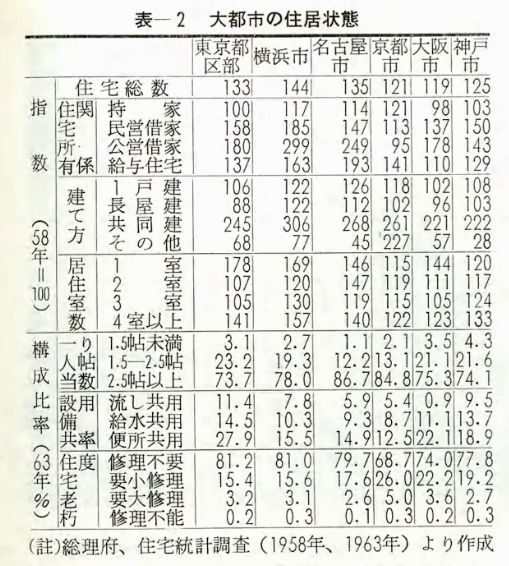 表—2 大都市の住居状態
東京都区部 横浜市 名古屋市 京都市 大阪市 神戸市
指数(58年=100)
住宅総数 133 144 135 121 119 125
住宅所有関係
持家 100 117 114 121 98 103
民営借家 158 185 147 113 137 150
公営借家 180 299 249 95 178 143
給与住宅 137 163 193 141 110 129
建て方
1戸建 106 122 126 118 102 108
長屋建 88 122 112 102 96 103
共同建 245 306 268 261 221 222
その他 68 77 45 227 57 28
居住室数
1室 178 169 146 115 144 120
2室 107 120 147 119 111 117
3室 105 130 119 115 105 124
4室以上 141 157 140 122 123 133
構成比率(63年%)
一人当り帖数
1.5帖未満 3.1 2.7 1.1 2.1 3.5 4.3
1.5—2.5帖 23.2 19.3 12.2 13.1 21.1 21.6
2.5帖以上 73.7 78.0 86.7 84.8 75.3 74.1
設備共用率
流し共用 11.4 7.8 5.9 5.4 0.9 9.5
給水共用 14.5 10.3 9.3 8.7 11.1 13.7
便所共用 27.9 15.5 14.9 12.5 22.1 18.9
住宅老朽度
修理不要 81.2 81.0 79.7 68.7 74.0 77.8
要小修理 15.4 15.6 17.6 26.0 22.2 19.2
要大修理 3.2 3.1 2.6 5.0 3.6 2.7
修理不能 0.2 0.3 0.1 0.3 0.2 0.3
(註)総理府、住宅統計調査(1958年、1963年)より作成